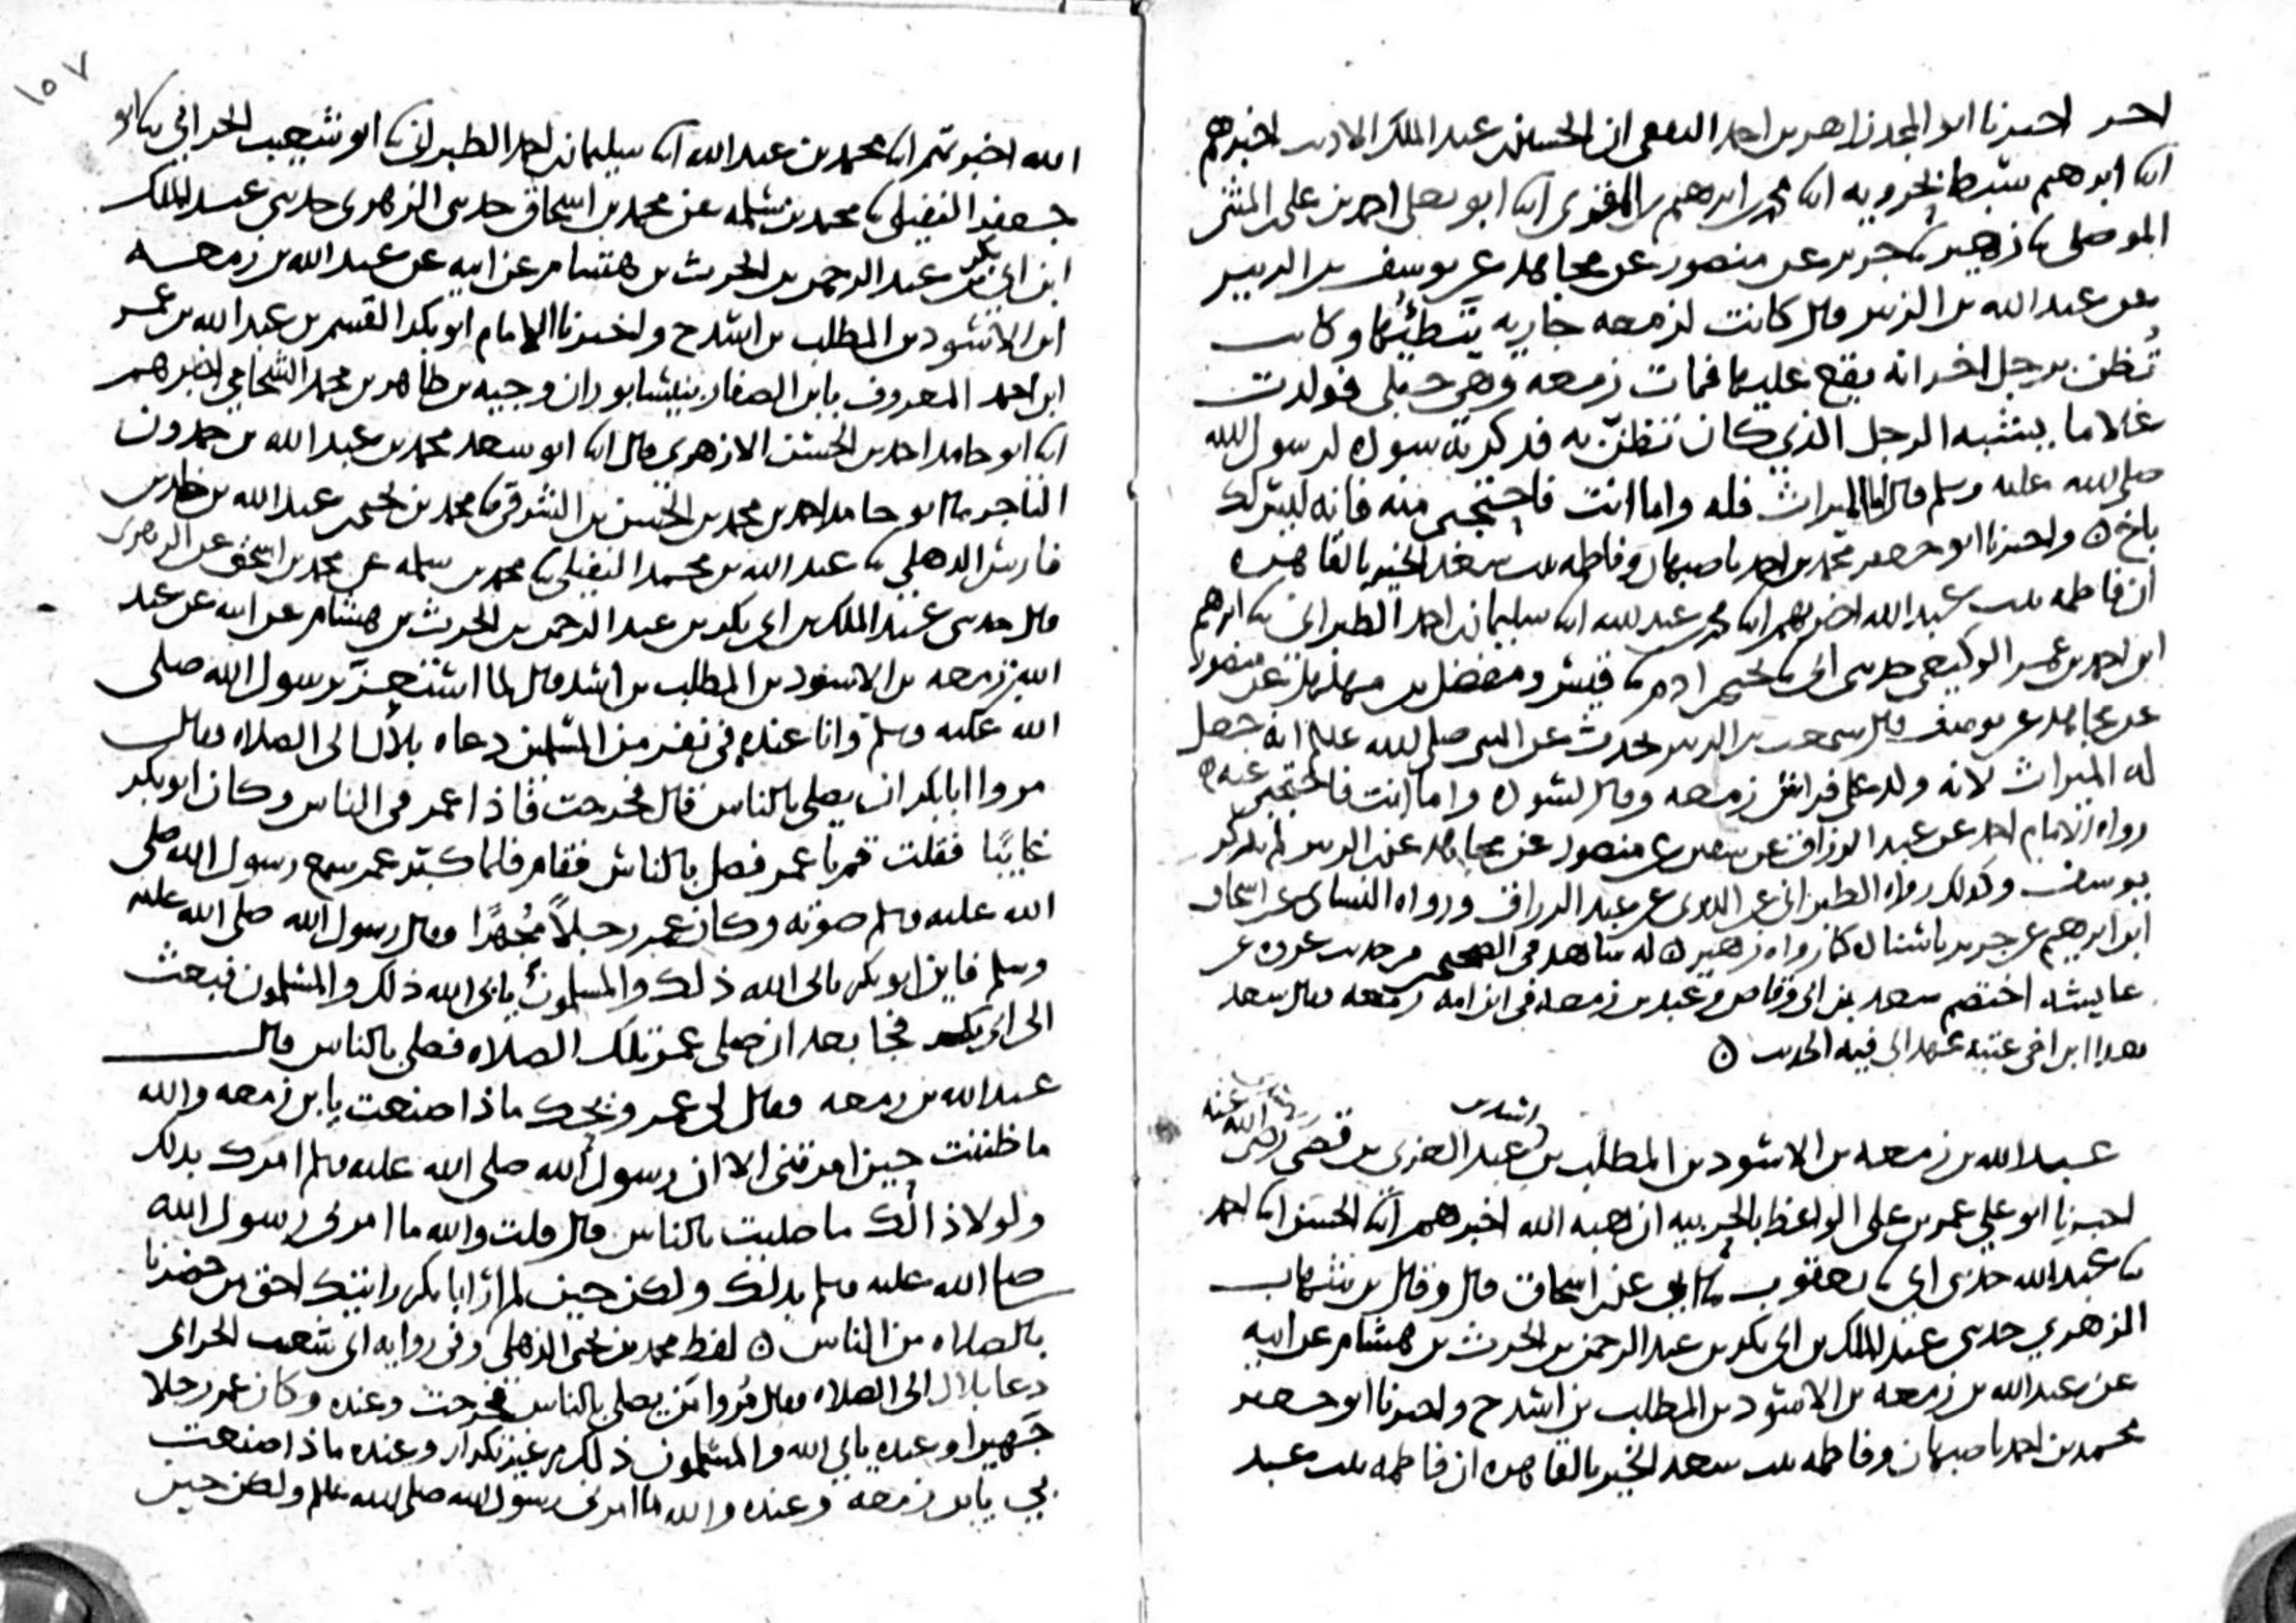 احر اخبرنا ابو المجد زاهر بن احمد الثقفي ان الحسين بن عبد الملك الاديب اخبرهم
ابنا ابرهيم سبط بحرويه ابنا محمد بن ابرهيم بن المقرى ابنا ابو يعلى احمد بن على بن المثنى
الموصلى ثنا زهير ثنا جرير عن منصور عن مجاهد عن يوسف بن الزبير
عن عبد الله بن الزبير قال كانت لزمعه جاريه يتطئها وكانت
تُظن برجل اخر انه يقع عليها فمات زمعه وهى حبلى فولدت
غلاما يشبه الرجل الذي كان تظنّ به فذكرته سوده لرسول الله
صلى الله عليه وسلم فقال اما الميراث فله واما انت فاحتجبي منه فانه ليس لك
باخ ه واخبرنا ابو جعفر محمد بن احمد باصبهان وفاطمه بنت سعد الخير بالقاهره
ان فاطمه بنت عبد الله اخبرتهم ابنا محمد بن عبد الله ابنا سليمان بن احمد الطبراني ثنا ابرهيم
ابن احمد بن عمر الوكيعي حدثنى ابى ثنا يحيى بن ادم ثنا قيس ومفضل بن مهلهل عن منصور
عن مجاهد عن يوسف قال سمعت بن الزبير يحدث عن النبى صلى الله عليه انه جعل
له الميراث لانه ولد على فراش زمعه وقال لسوده واما انت فاحتجبي عنه ه
رواه الامام احمد عن عبد الرزاق عن سفين عن منصور عن مجاهد عن بن الزبير لم يذكر
يوسف وكذلك رواه الطبرانى عن الدبرى عن عبد الرزاق ورواه النساى عن اسحاق
ابن ابرهيم عن جرير باسناده كما رواه زهير ه له شاهد فى الصحيحين من حديث عروه عن
عايشه اختصم سعد بن ابى وقاص وعبد بن زمعه فى ابن امه زمعه فقال سعد
هذا ابن اخى عتبه عهد الى فيه الحديث ه
عبد الله بن زمعه بن الاسود بن المطلب بن اسد بن عبد العزى بن قصي رضي الله عنه
اخبرنا ابو علي عمر بن على الواعظ بالحربيه ان هبه الله اخبرهم ابنا الحسن ابنا احمد
ثنا عبد الله حدثنى ابى ثنا يعقوب ثنا ابي عن بن اسحاق قال وقال بن شهاب
الزهري حدثنى عبد الملك بن ابى بكر بن عبد الرحمن بن الحرث بن هشام عن ابيه
عن عبد الله بن زمعه بن الاسود بن المطلب بن اسد ح واخبرنا ابو جعفر
محمد بن احمد باصبهان وفاطمه بنت سعد الخير بالقاهره ان فاطمه بنت عبد
١٥٧
الله اخبرتهم ابنا محمد بن عبد الله ابنا سليمان بن احمد الطبراني ثنا ابو شعيب الحراني ثنا ابو
جعفر النفيلي ثنا محمد بن سلمه عن محمد بن اسحاق حدثنى الزهرى حدثنى عبد الملك
ابن ابى بكر بن عبد الرحمن بن الحرث بن هشام عن ابيه عن عبد الله بن زمعه
ابن الاسود بن المطلب بن اسد ح واخبرنا الامام ابو بكر القسم بن عبد الله بن عمر
ابن احمد المعروف بابن الصفار بنيسابور ان وجيه بن طاهر بن محمد الشحامي اخبرهم
ابنا ابو حامد احمد بن الحسن الازهرى قال ابنا ابو سعد محمد بن عبد الله بن حمدون
التاجر ثنا ابو حامد احمد بن محمد بن الحسن بن الشرقي ثنا محمد بن يحيى بن عبد الله بن خالد بن
فارس الذهلي ثنا عبد الله بن محمد النفيلي ثنا محمد بن سلمه عن محمد بن اسحق عن الزهرى
قال حدثنى عبد الملك بن ابى بكر بن عبد الرحمن بن الحرث بن هشام عن ابيه عن عبد
الله بن زمعه بن الاسود بن المطلب بن اسد قال لما استعز برسول الله صلى
الله عليه وسلم وانا عنده فى نفر من المسلمين دعاه بلال الى الصلاه فقال
مروا ابا بكر ان يصلى بالناس قال فخرجت فاذا عمر فى الناس وكان ابو بكر
غايبًا فقلت قم يا عمر فصل بالناس فقام فلما كبّر عمر سمع رسول الله صلى
الله عليه وسلم صوته وكان عمر رجلاً مُجهرًا فقال رسول الله صلى الله عليه
وسلم فاين ابو بكر يابى الله ذلك والمسلمون يابى الله ذلك والمسلمون فبعث
الى ابى بكر فجا بعد ان صلى عمر تلك الصلاه فصلى بالناس قال
عبد الله بن زمعه فقال لى عمر ويحك ماذا صنعت يا بن زمعه والله
ما ظننت حين امرتنى الا ان رسول الله صلى الله عليه وسلم امرك بذلك
ولولا ذالك ما صليت بالناس قال قلت والله ما امرنى رسول الله
صلى الله عليه وسلم بذلك ولكن حين لم ار ابا بكر رايتك احق من حضرنا
بالصلاه من الناس ه لفظ محمد بن يحيى الذهلي وفى روايه ابى شعيب الحرانى
دعا بلال الى الصلاه فقال مُروا مَن يصلى بالناس فخرجت وعنده وكان عمر رجلا
جَهِيرا وعنده يابى الله والمسلمون ذلك من غير تكرار وعنده ماذا صنعت
بي يا بن زمعه وعنده والله ما امرنى رسول الله صلى الله عليه ولكن حين